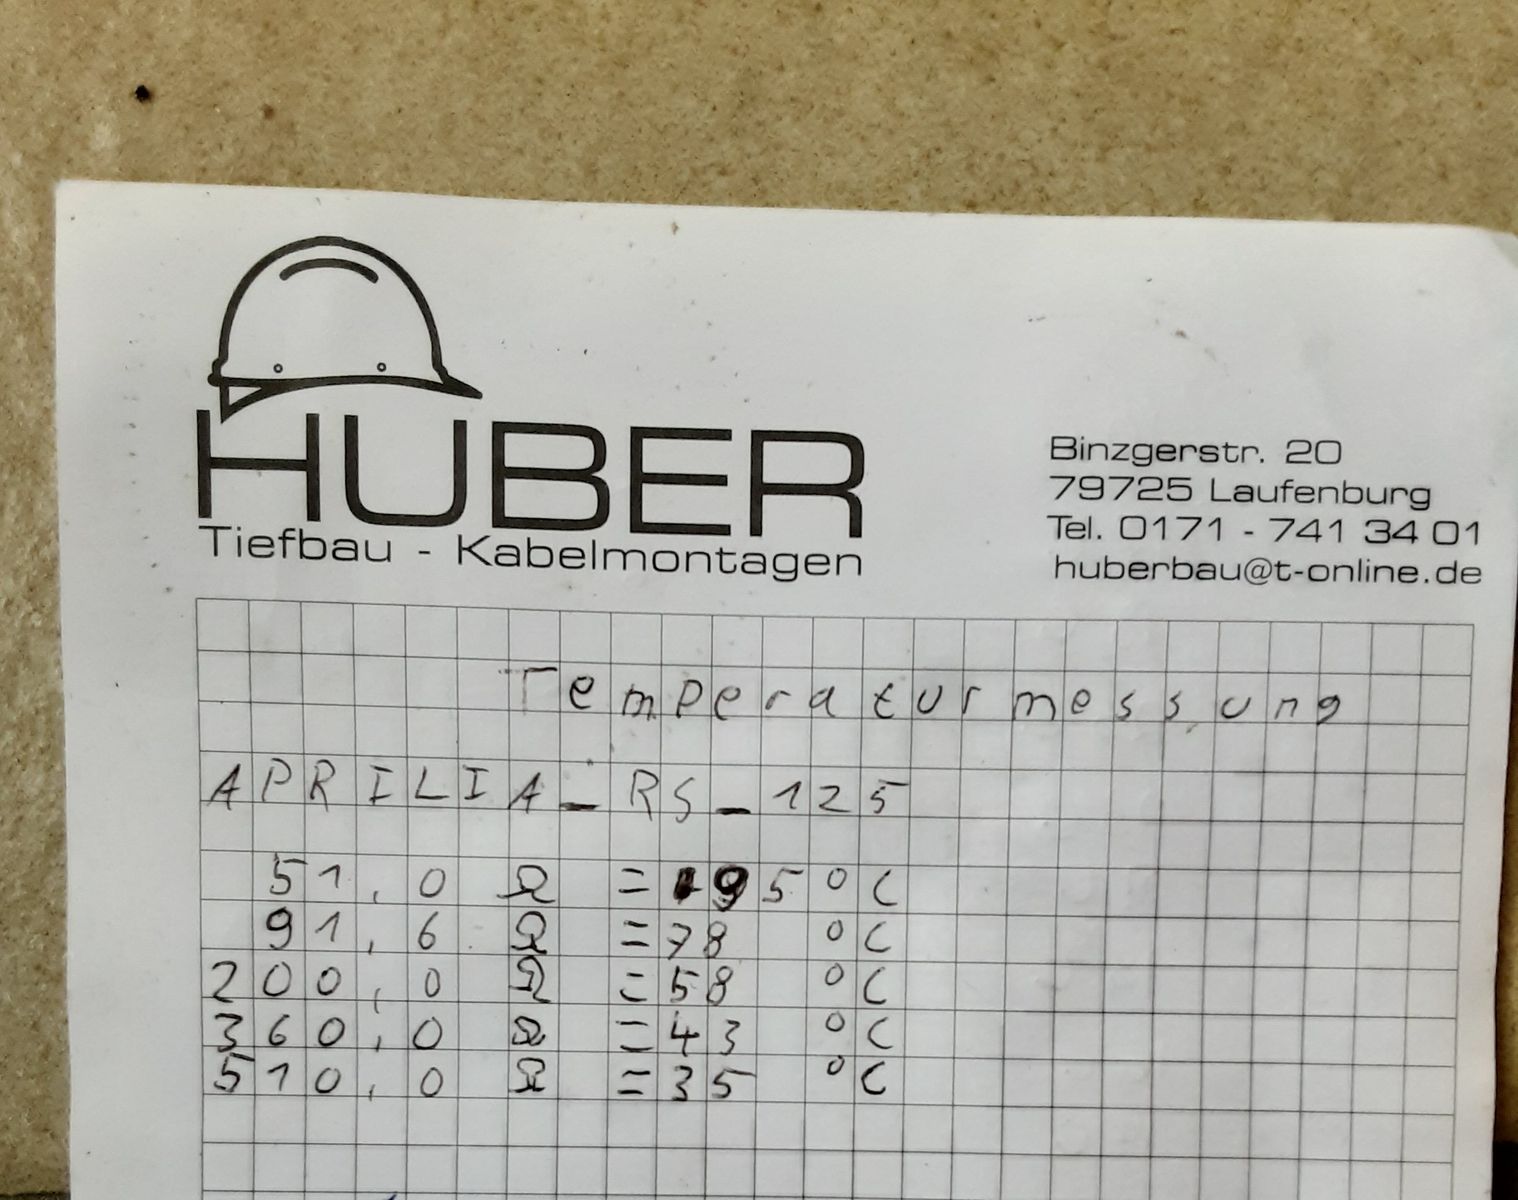 HUBER
Tiefbau - Kabelmontagen
Binzgerstr. 20
79725 Laufenburg
Tel. 0171 - 741 34 01
huberbau@t-online.de
Temperaturmessung
APRILIA_RS_125
51,0 Ω = 95 °C
91,6 Ω = 78 °C
200,0 Ω = 58 °C
360,0 Ω = 43 °C
510,0 Ω = 35 °C